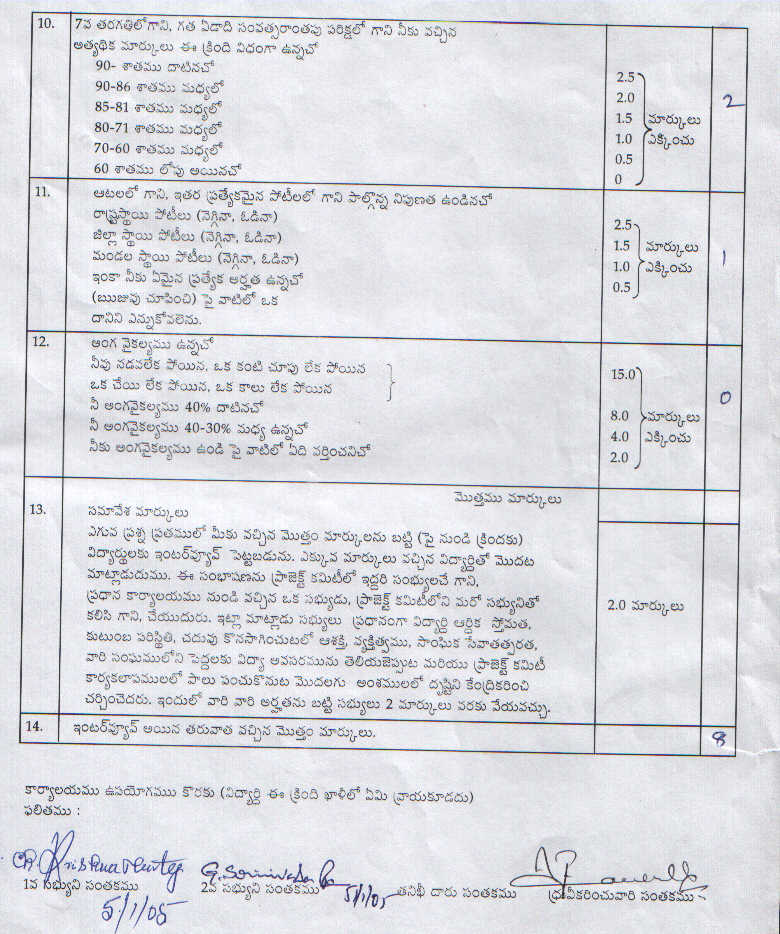 10. 7వ తరగతిలోగాని, గత ఏడాది సంవత్సరాంతపు పరిక్షలో గాని నీకు వచ్చిన
అత్యధిక మార్కులు ఈ క్రింది విధంగా ఉన్నచో
90- శాతము దాటినచో
90-86 శాతము మధ్యలో 2.5
85-81 శాతము మధ్యలో 2.0 2
80-71 శాతము మధ్యలో 1.5 మార్కులు
70-60 శాతము మధ్యలో 1.0 ఎక్కించు
60 శాతము లోపు అయినచో 0.5
0
11. ఆటలలో గాని, ఇతర ప్రత్యేకమైన పోటీలలో గాని పాల్గొన్న నిపుణత ఉండినచో
రాష్ట్రస్థాయి పోటీలు (నెగ్గినా, ఓడినా) 2.5
జిల్లా స్థాయి పోటీలు (నెగ్గినా, ఓడినా) 1.5 మార్కులు 1
మండల స్థాయి పోటీలు (నెగ్గినా, ఓడినా) 1.0 ఎక్కించు
ఇంకా నీకు ఏమైన ప్రత్యేక అర్హత ఉన్నచో 0.5
(ఋజువు చూపించి) పై వాటిలో ఒక
దానిని ఎన్నుకోవలెను.
12. అంగ వైకల్యము ఉన్నచో
నీవు నడవలేక పోయిన, ఒక కంటి చూపు లేక పోయిన 15.0
ఒక చేయి లేక పోయిన, ఒక కాలు లేక పోయిన 0
నీ అంగవైకల్యము 40% దాటినచో 8.0 మార్కులు
నీ అంగవైకల్యము 40-30% మధ్య ఉన్నచో 4.0 ఎక్కించు
నీకు అంగవైకల్యము ఉండి పై వాటిలో ఏది వర్తించనిచో 2.0
మొత్తము మార్కులు
13. సమావేశ మార్కులు
ఎగువ ప్రశ్న ప్రతములో మీకు వచ్చిన మొత్తం మార్కులను బట్టి (పై నుండి క్రిందకు)
విద్యార్థులకు ఇంటర్‌వ్యూవ్ పెట్టబడును. ఎక్కువ మార్కులు వచ్చిన విద్యార్ధితో మొదట
మాట్లాడుదుము. ఈ సంభాషణను ప్రాజెక్ట్ కమిటీలో ఇద్దరి సంభ్యులచే గాని,
ప్రధాన కార్యాలయము నుండి వచ్చిన ఒక సభ్యుడు, ప్రాజెక్ట్ కమిటీలోని మరో సభ్యునితో 2.0 మార్కులు
కలిసి గాని, చేయుదురు. ఇట్లా మాట్లాడు సభ్యులు ప్రధానంగా విద్యార్ధి ఆర్ధిక స్తోమత,
కుటుంబ పరిస్థితి, చదువు కొనసాగించుటలో ఆశక్తి, వ్యక్తిత్వము, సాంఘిక సేవాతత్పరత,
వారి సంఘములోని పెద్దలకు విద్యా అవసరమును తెలియజెప్పుట మరియు ప్రాజెక్ట్ కమిటీ
కార్యకలాపములలో పాలు పంచుకొనుట మొదలగు అంశములలో దృష్టిని కేంద్రికరించి
చర్చించెదరు. ఇందులో వారి వారి అర్హతను బట్టి సభ్యులు 2 మార్కులు వరకు వేయవచ్చు.
14. ఇంటర్‌వ్యూవ్ అయిన తరువాత వచ్చిన మొత్తం మార్కులు. 8
కార్యాలయము ఉపయోగముు కొరకు (విద్యార్ధి ఈ క్రింది ఖాళీలో ఏమి వ్రాయకూడదు)
ఫలితము :
G. Srinivasa
1వ సభ్యుని సంతకము 2వ సభ్యుని సంతకము 5/1/05 తనిఖీ దారు సంతకము ధ్రువీకరించువారి సంతకము
5/1/05